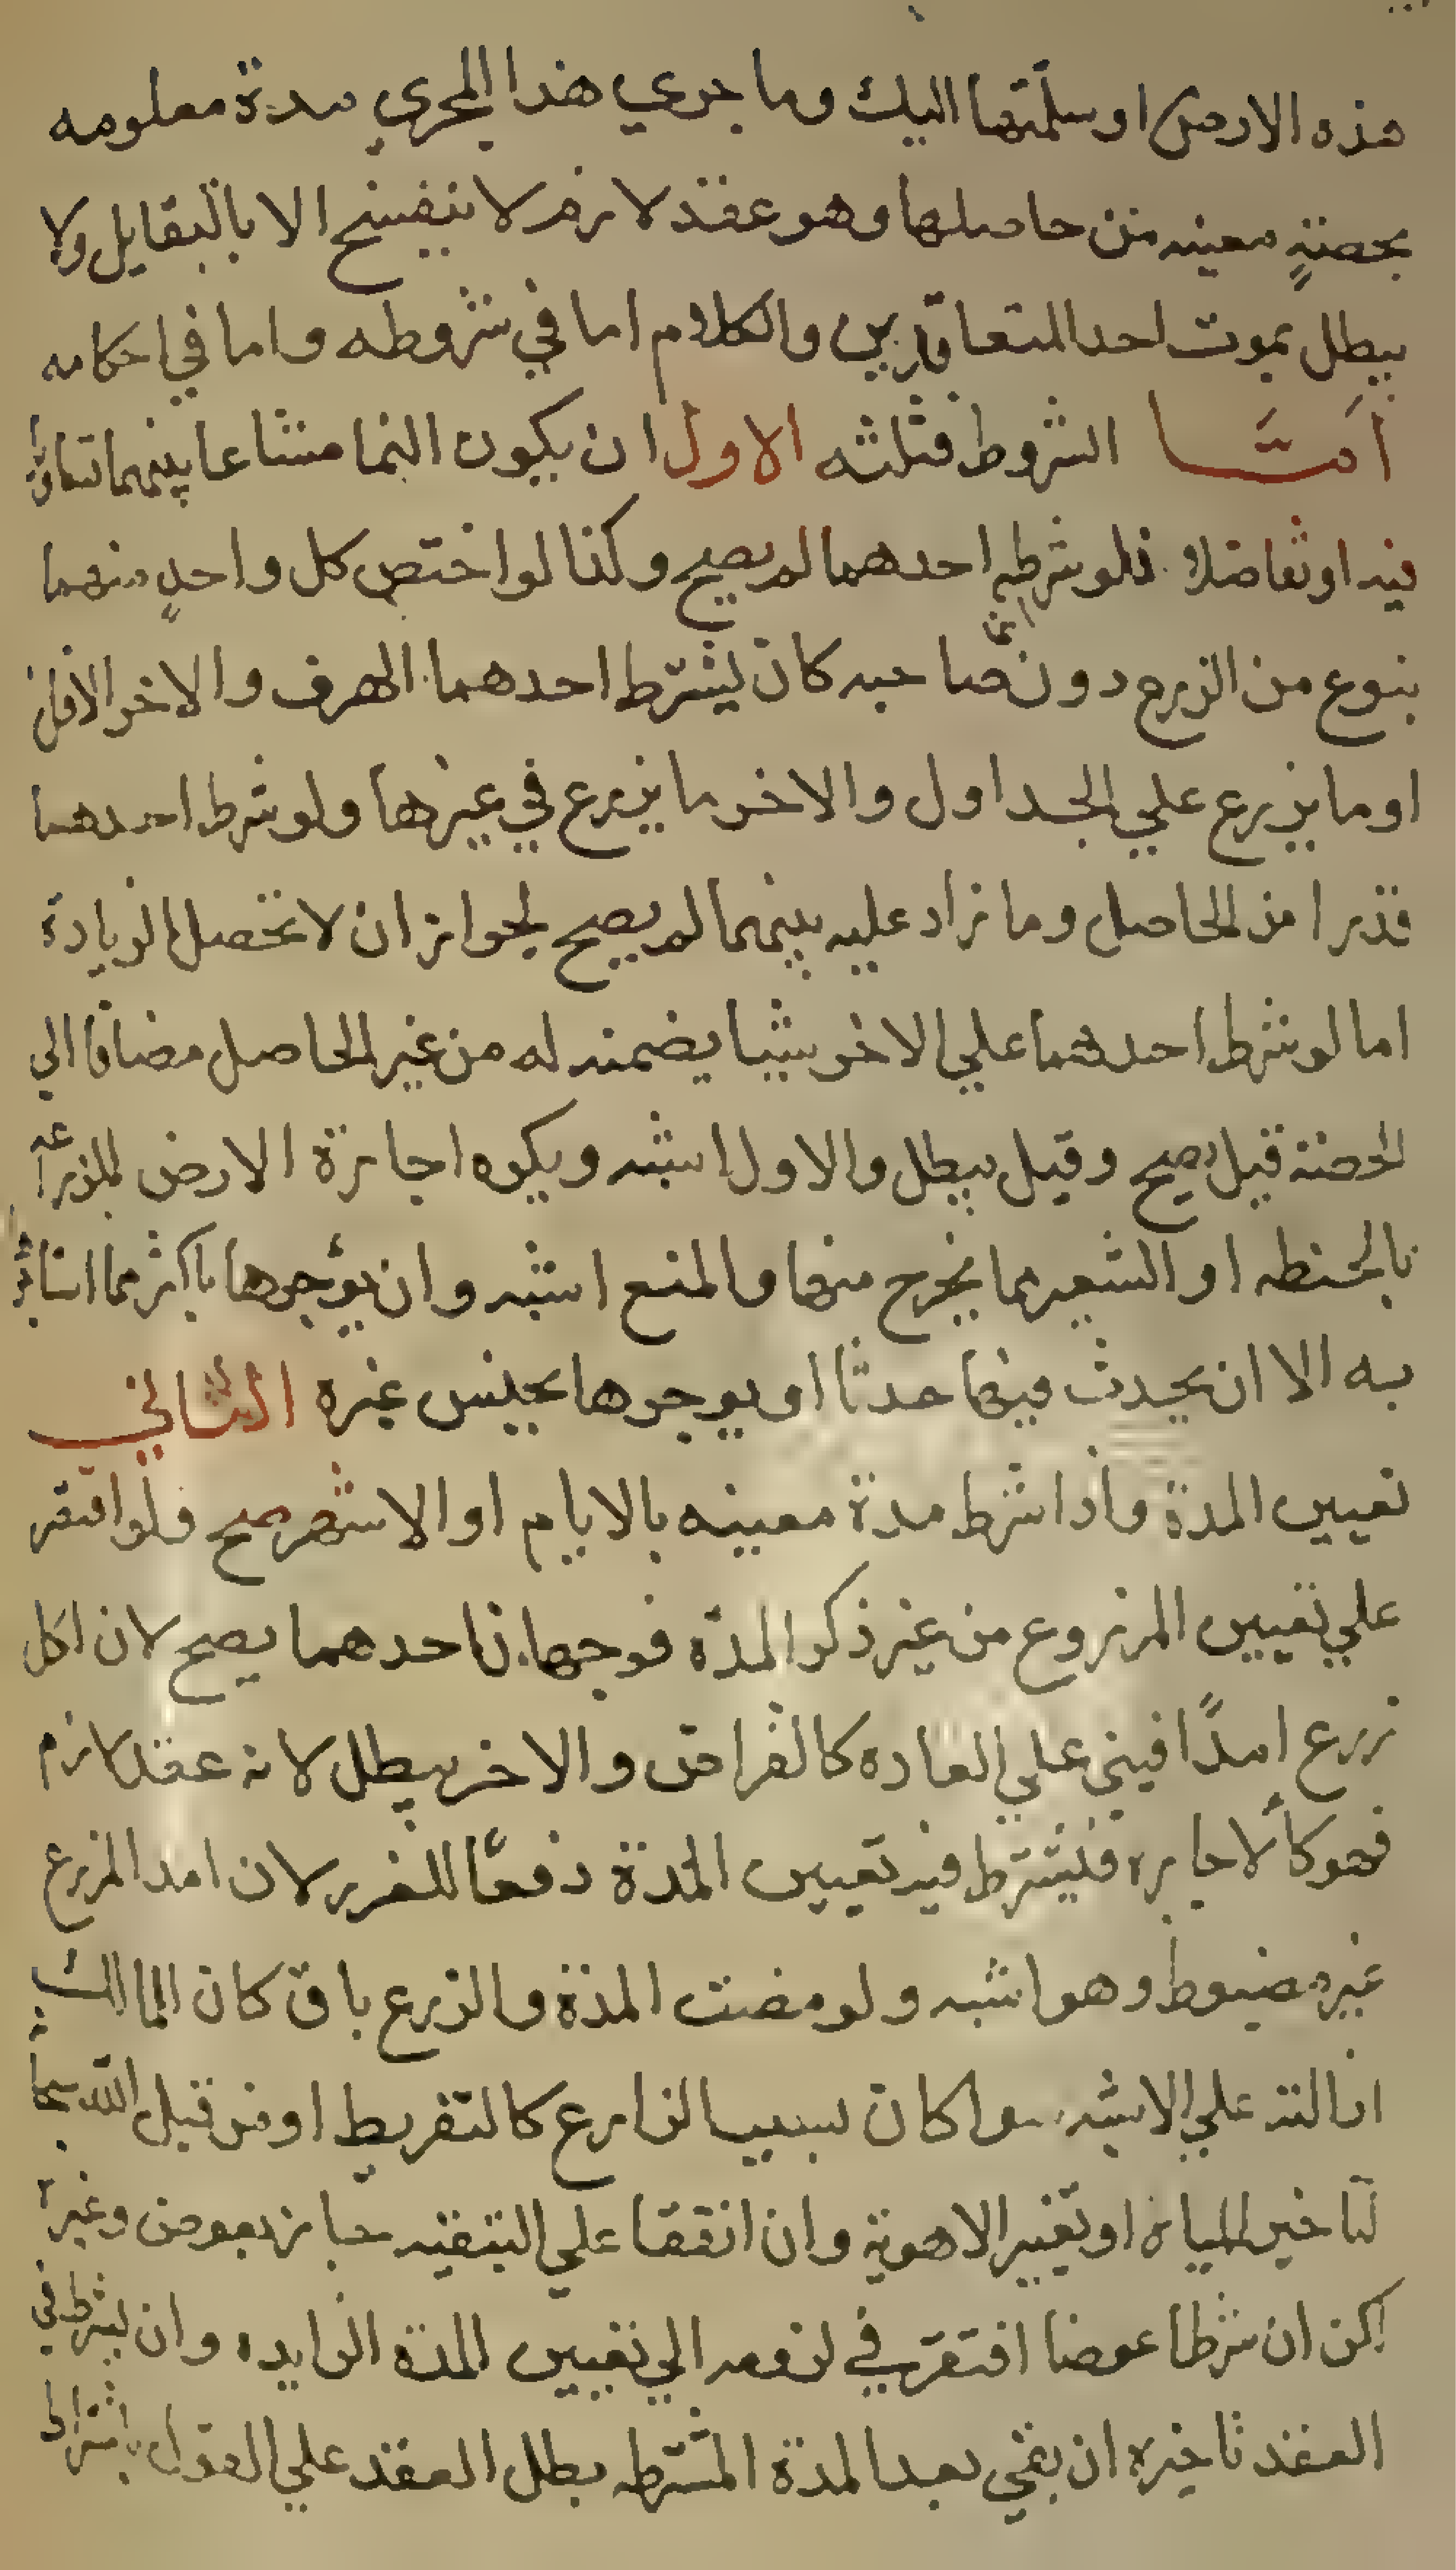 هذه الارض او سلمتها اليك وما جري هذا المجري مدة معلومه
بحصةٍ معينه من حاصلها وهو عقد لازم لا ينفسخ الا بالتقايل ولا
يبطل بموت احد المتعاقدين والكلام اما في شروطه واما في احكامه
اَمَّا الشروط فثلثه الاول ان يكون النما مشاعا بينهما تساويا
فيه او تفاضلا فلو شرطه احدهما لم يصح وكذا لو اختص كل واحدٍ منهما
بنوع من الزرع دون صاحبه كان يشترط احدهما الهرف والاخر الافل
او ما يزرع علي الجداول والاخر ما يزرع في غيرها ولو شرط احدهما
قدرا من الحاصل وما زاد عليه بينهما لم يصح لجواز ان لا تحصل الزيادة
اما لو شرط احدهما علي الاخر شيا يضمنه له من غير الحاصل مضافا الي
الحصة قيل يصح وقيل يبطل والاول اشبه ويكره اجازة الارض للمزراعه
بالحنطه او الشعير بما يخرج منها والمنع اشبه وان يؤجرها باكثر مما استاجر
به الا ان يحدث فيها حدثا او يوجرها بجنس غيره الثاني
تعيين المدة واذا اشترط مدة معينه بالايام او الاشهر صح فلو اقتصر
علي تعيين المزروع من غير ذكر المدة فوجهان احدهما يصح لان لكل
زرع امدًا فيبني علي العاده كالقراض والاخر يبطل لانه عقد لازم
فهو كألاجاره فيشترط فيه تعيين المدة دفعًا للغرر لان امد المزرع
غير مضبوط وهو اشبه ولو مضت المدة والزرع باق كان للمالك
ازالته علي الاشبه سوا كان بسبب الزارع كالتفريط او من قبل الله سبحا
لتاخير المياه او تغيير الاهوية وان اتفقا علي التبقيه جاز بعوض وغيره
لكن ان شرطا عوضا افتقر في لزومه الي تعيين المدة الزايده وان يشرط في
العقد تاخيره ان بقي بعد المدة المشترطه بطل العقد علي القول باشتراط